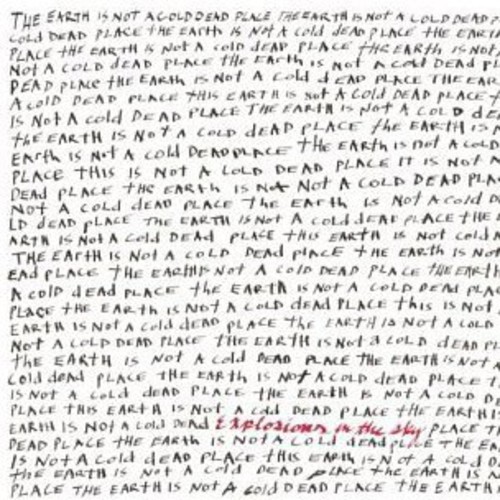 THE EARTH IS NOT A COLD DEAD PLACE THE EARTH IS NOT A COLD DEAD
COLD DEAD PLACE THE EARTH IS NOT A COLD DEAD PLACE THE EARTH
PLACE THE EARTH IS NOT A COLD DEAD PLACE THE EARTH IS NOT
NOT A COLD DEAD PLACE THE EARTH IS NOT A COLD DEAD PL
DEAD PLACE THE EARTH IS NOT A COLD DEAD PLACE THE EAR
A COLD DEAD PLACE THIS EARTH IS NOT A COLD DEAD PLACE
IS NOT A COLD DEAD PLACE THE EARTH IS NOT A COLD DE
THE EARTH IS NOT A COLD DEAD PLACE THE EARTH IS
EARTH IS NOT A COLD DEAD PLACE THE EARTH IS NOT A COLD
PLACE THIS IS NOT A COLD DEAD PLACE IT IS NOT A
DEAD PLACE THE EARTH IS NOT NOT A COLD DEAD PLA
NOT A COLD DEAD PLACE THE EARTH IS NOT A COLD D
LD DEAD PLACE THE EARTH IS NOT A COLD DEAD PLACE THE
ARTH IS NOT A COLD DEAD PLACE THIS EARTH IS NOT COLD
THE EARTH IS NOT A COLD DEAD PLACE THE EARTH IS NOT
EAD PLACE THE EARTH IS NOT A COLD DEAD PLACE THE EARTH
A COLD DEAD PLACE THE EARTH IS NOT A COLD DEAD PLAC
PLACE THE EARTH IS NOT A COLD DEAD PLACE THIS IS NOT
EARTH IS NOT A COLD DEAD PLACE THE EARTH IS NOT A COLD
NOT A COLD DEAD PLACE THE EARTH IS NOT A COLD DEAD PL
THE EARTH IS NOT A COLD DEAD PLACE THE EARTH IS NOT A
COLD DEAD PLACE THE EARTH IS NOT A COLD DEAD PLACE T
IS NOT A COLD DEAD PLACE THE EARTH IS NOT A COLD D
PLACE THIS EARTH IS NOT A COLD DEAD PLACE THE EARTH
EARTH IS NOT A COLD DEAD Explosions in the sky PLACE T
DEAD PLACE THE EARTH IS NOT A COLD DEAD PLACE THE EA
IS NOT A COLD DEAD PLACE THIS EARTH IS NOT A COLD
THE EARTH IS NOT A COLD DEAD PLACE THE EARTH IS
PLACE THE EARTH IS NOT A COLD DEAD PLACE THE EARTH